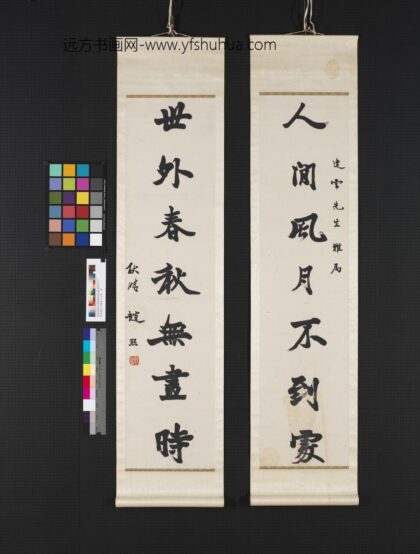 远方书画网-www.yfshuhua.com
人間風月不到處
達雲先生雅屬
世外春秋無盡時
秋濤 趙熙